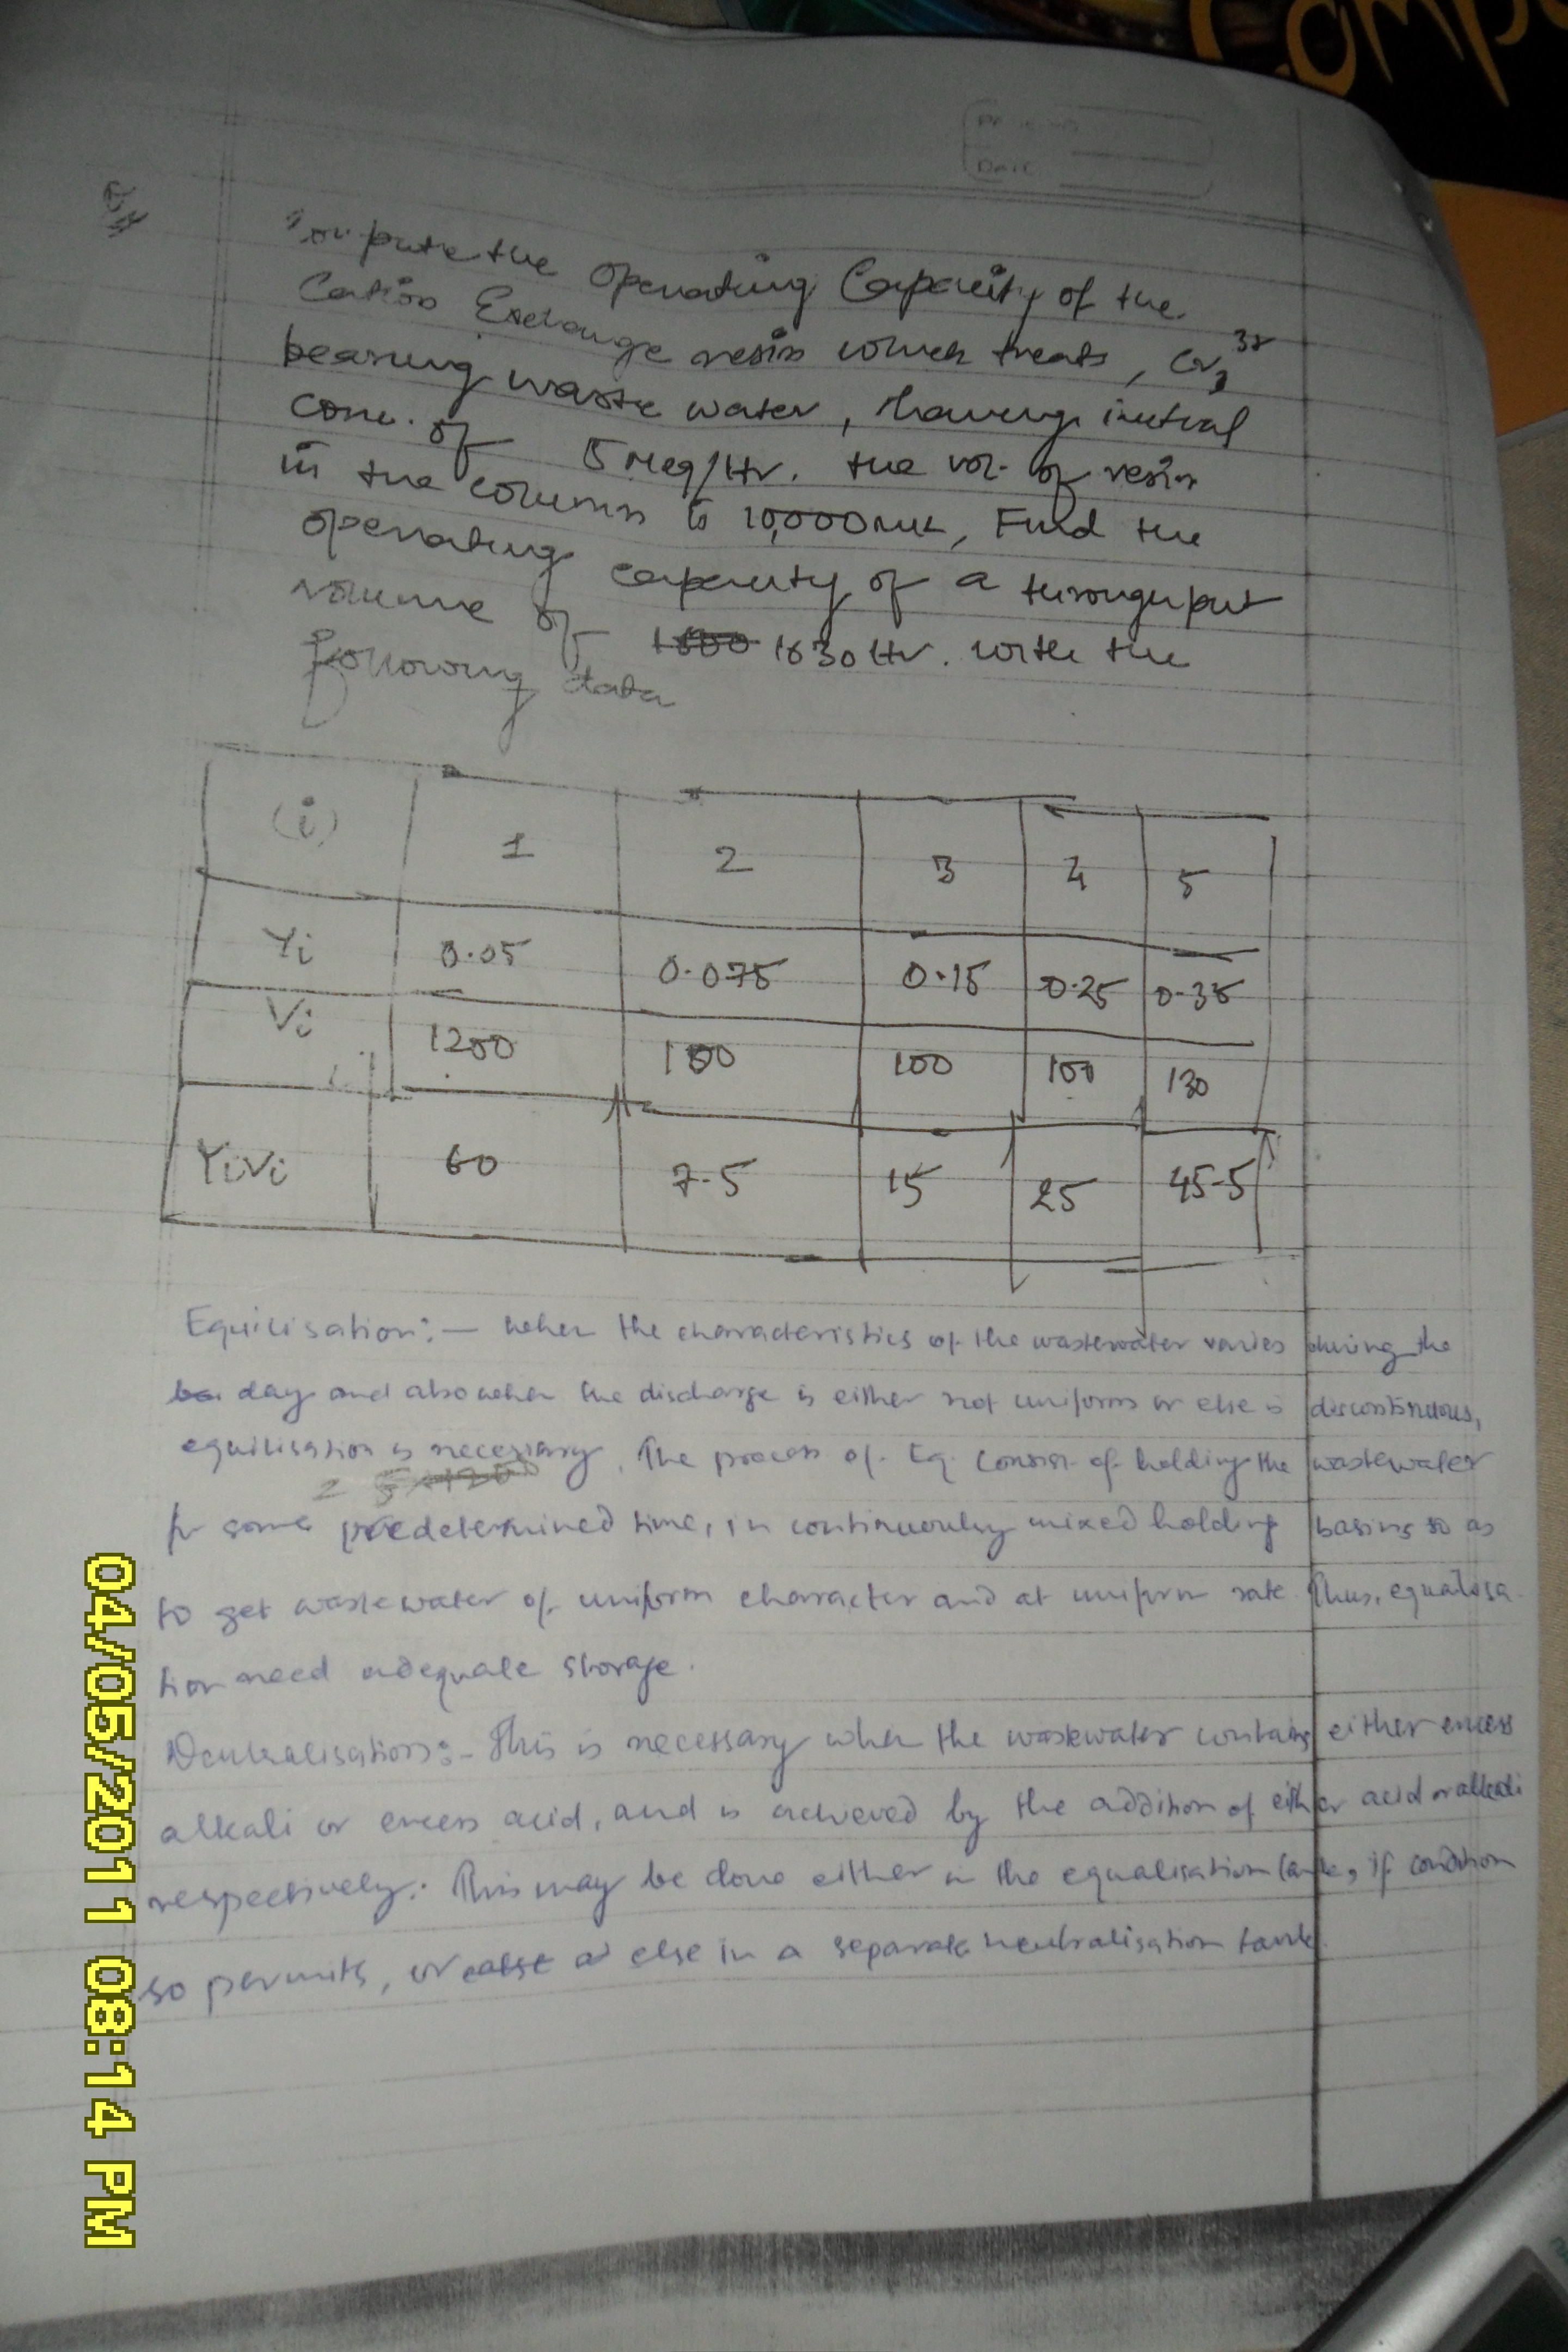 Comp
Page No
Date
Compute the Operating Capacity of the
Cation Exchange resin which treats, Cr3 3+
bearing waste water, having initial
conc. of 5 meq/ltr. the vol. of resin
in the column is 10,000 mL, Find the
operating capacity of a throughput
volume of 1630 ltr. with the
following data
(i) 1 2 3 4 5
Yi 0.05 0.075 0.15 0.25 0.35
Vi 1200 100 100 100 130
YiVi 60 7.5 15 25 45.5
Equilisation:- when the characteristics of the wastewater varies during the
day and also when the discharge is either not uniform or else is discontinuous,
equilisation is necessary. The process of Eq. consist of holding the wastewater
for some predetermined time, in continuously mixed holding basins so as
to get wastewater of uniform character and at uniform rate. Thus, equalisa
tion need adequate storage.
Neutralisation:- This is necessary when the wastewater contains either excess
alkali or excess acid, and is achieved by the addition of either acid or alkali
respectively. This may be done either in the equalisation tank, if condition
so permits, or else in a separate neutralisation tank.
04/05/2011 08:14 PM